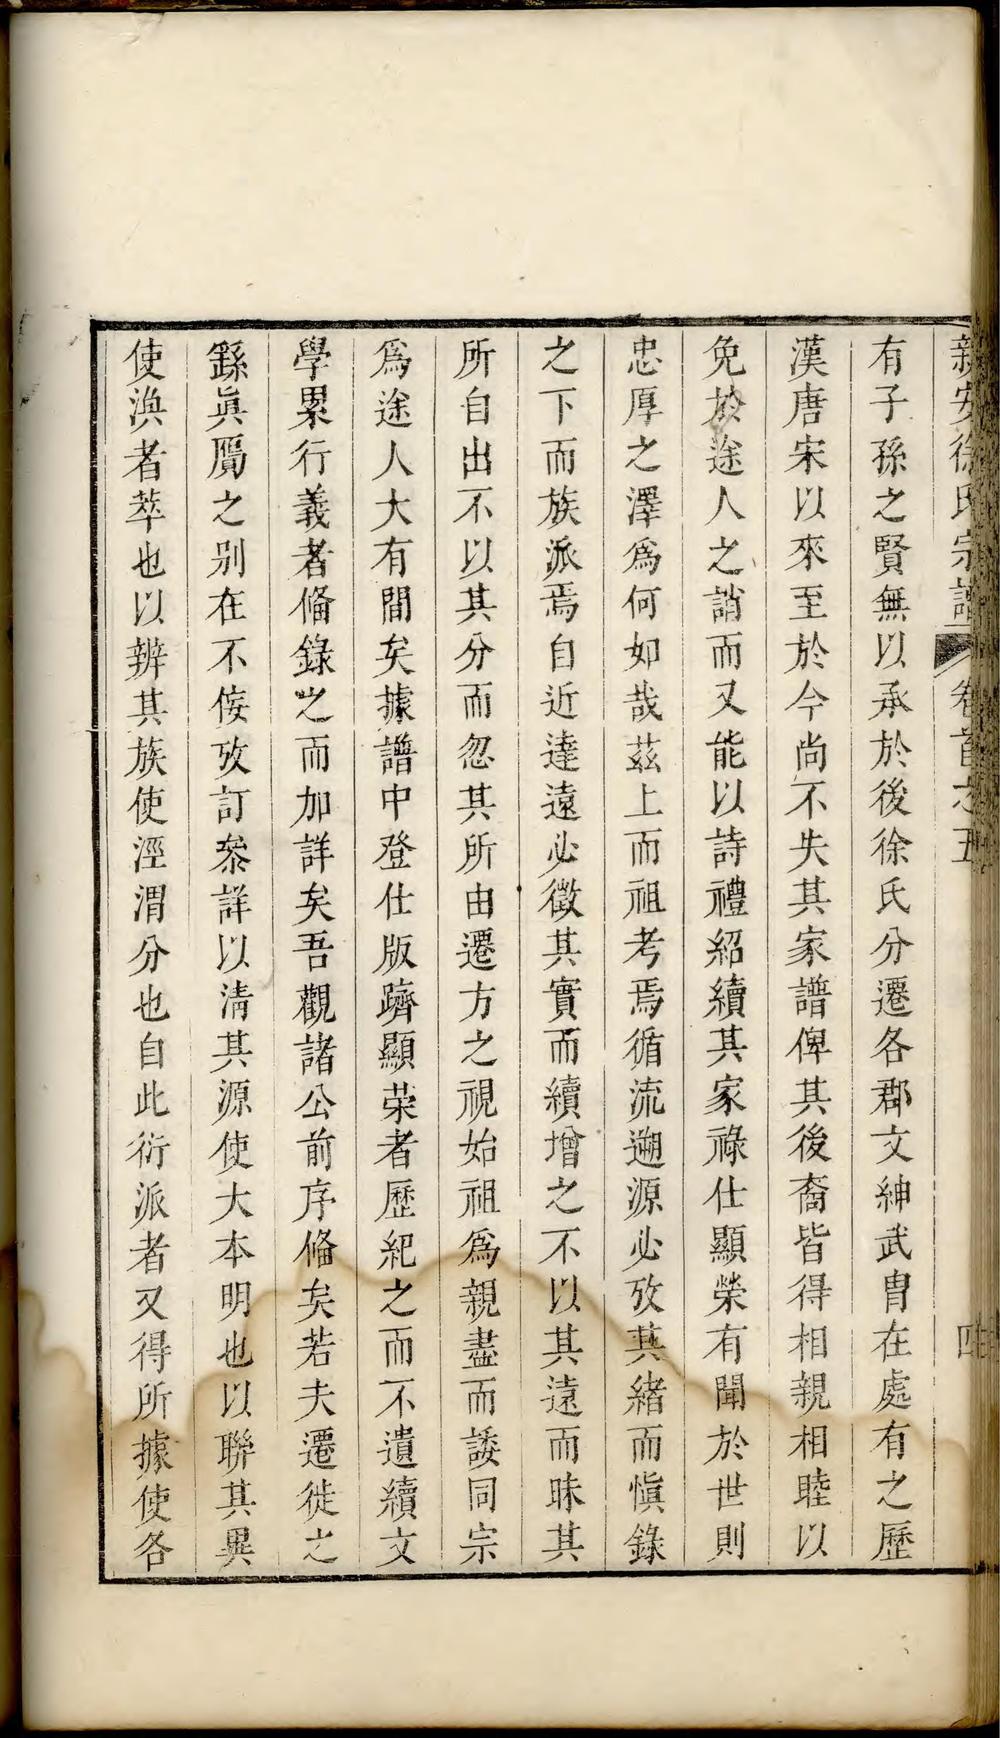 新安徐氏宗譜 卷首之五 四
有子孫之賢無以承於後徐氏分遷各郡文紳武冑在處有之歷
漢唐宋以來至於今尚不失其家譜俾其後裔皆得相親相睦以
免於途人之誚而又能以詩禮紹續其家祿仕顯榮有聞於世則
忠厚之澤爲何如哉茲上而祖考焉循流遡源必攷其緒而愼錄
之下而族派焉自近達遠必徵其實而續增之不以其遠而昧其
所自出不以其分而忽其所由遷方之視始祖爲親盡而諉同宗
爲途人大有間矣據譜中登仕版躋顯荣者歷紀之而不遺續文
學累行義者脩錄之而加詳矣吾觀諸公前序脩矣若夫遷徙之
繇眞贋之别在不侫攷訂叅詳以淸其源使大本明也以聯其異
使渙者萃也以辨其族使涇渭分也自此衍派者又得所據使各